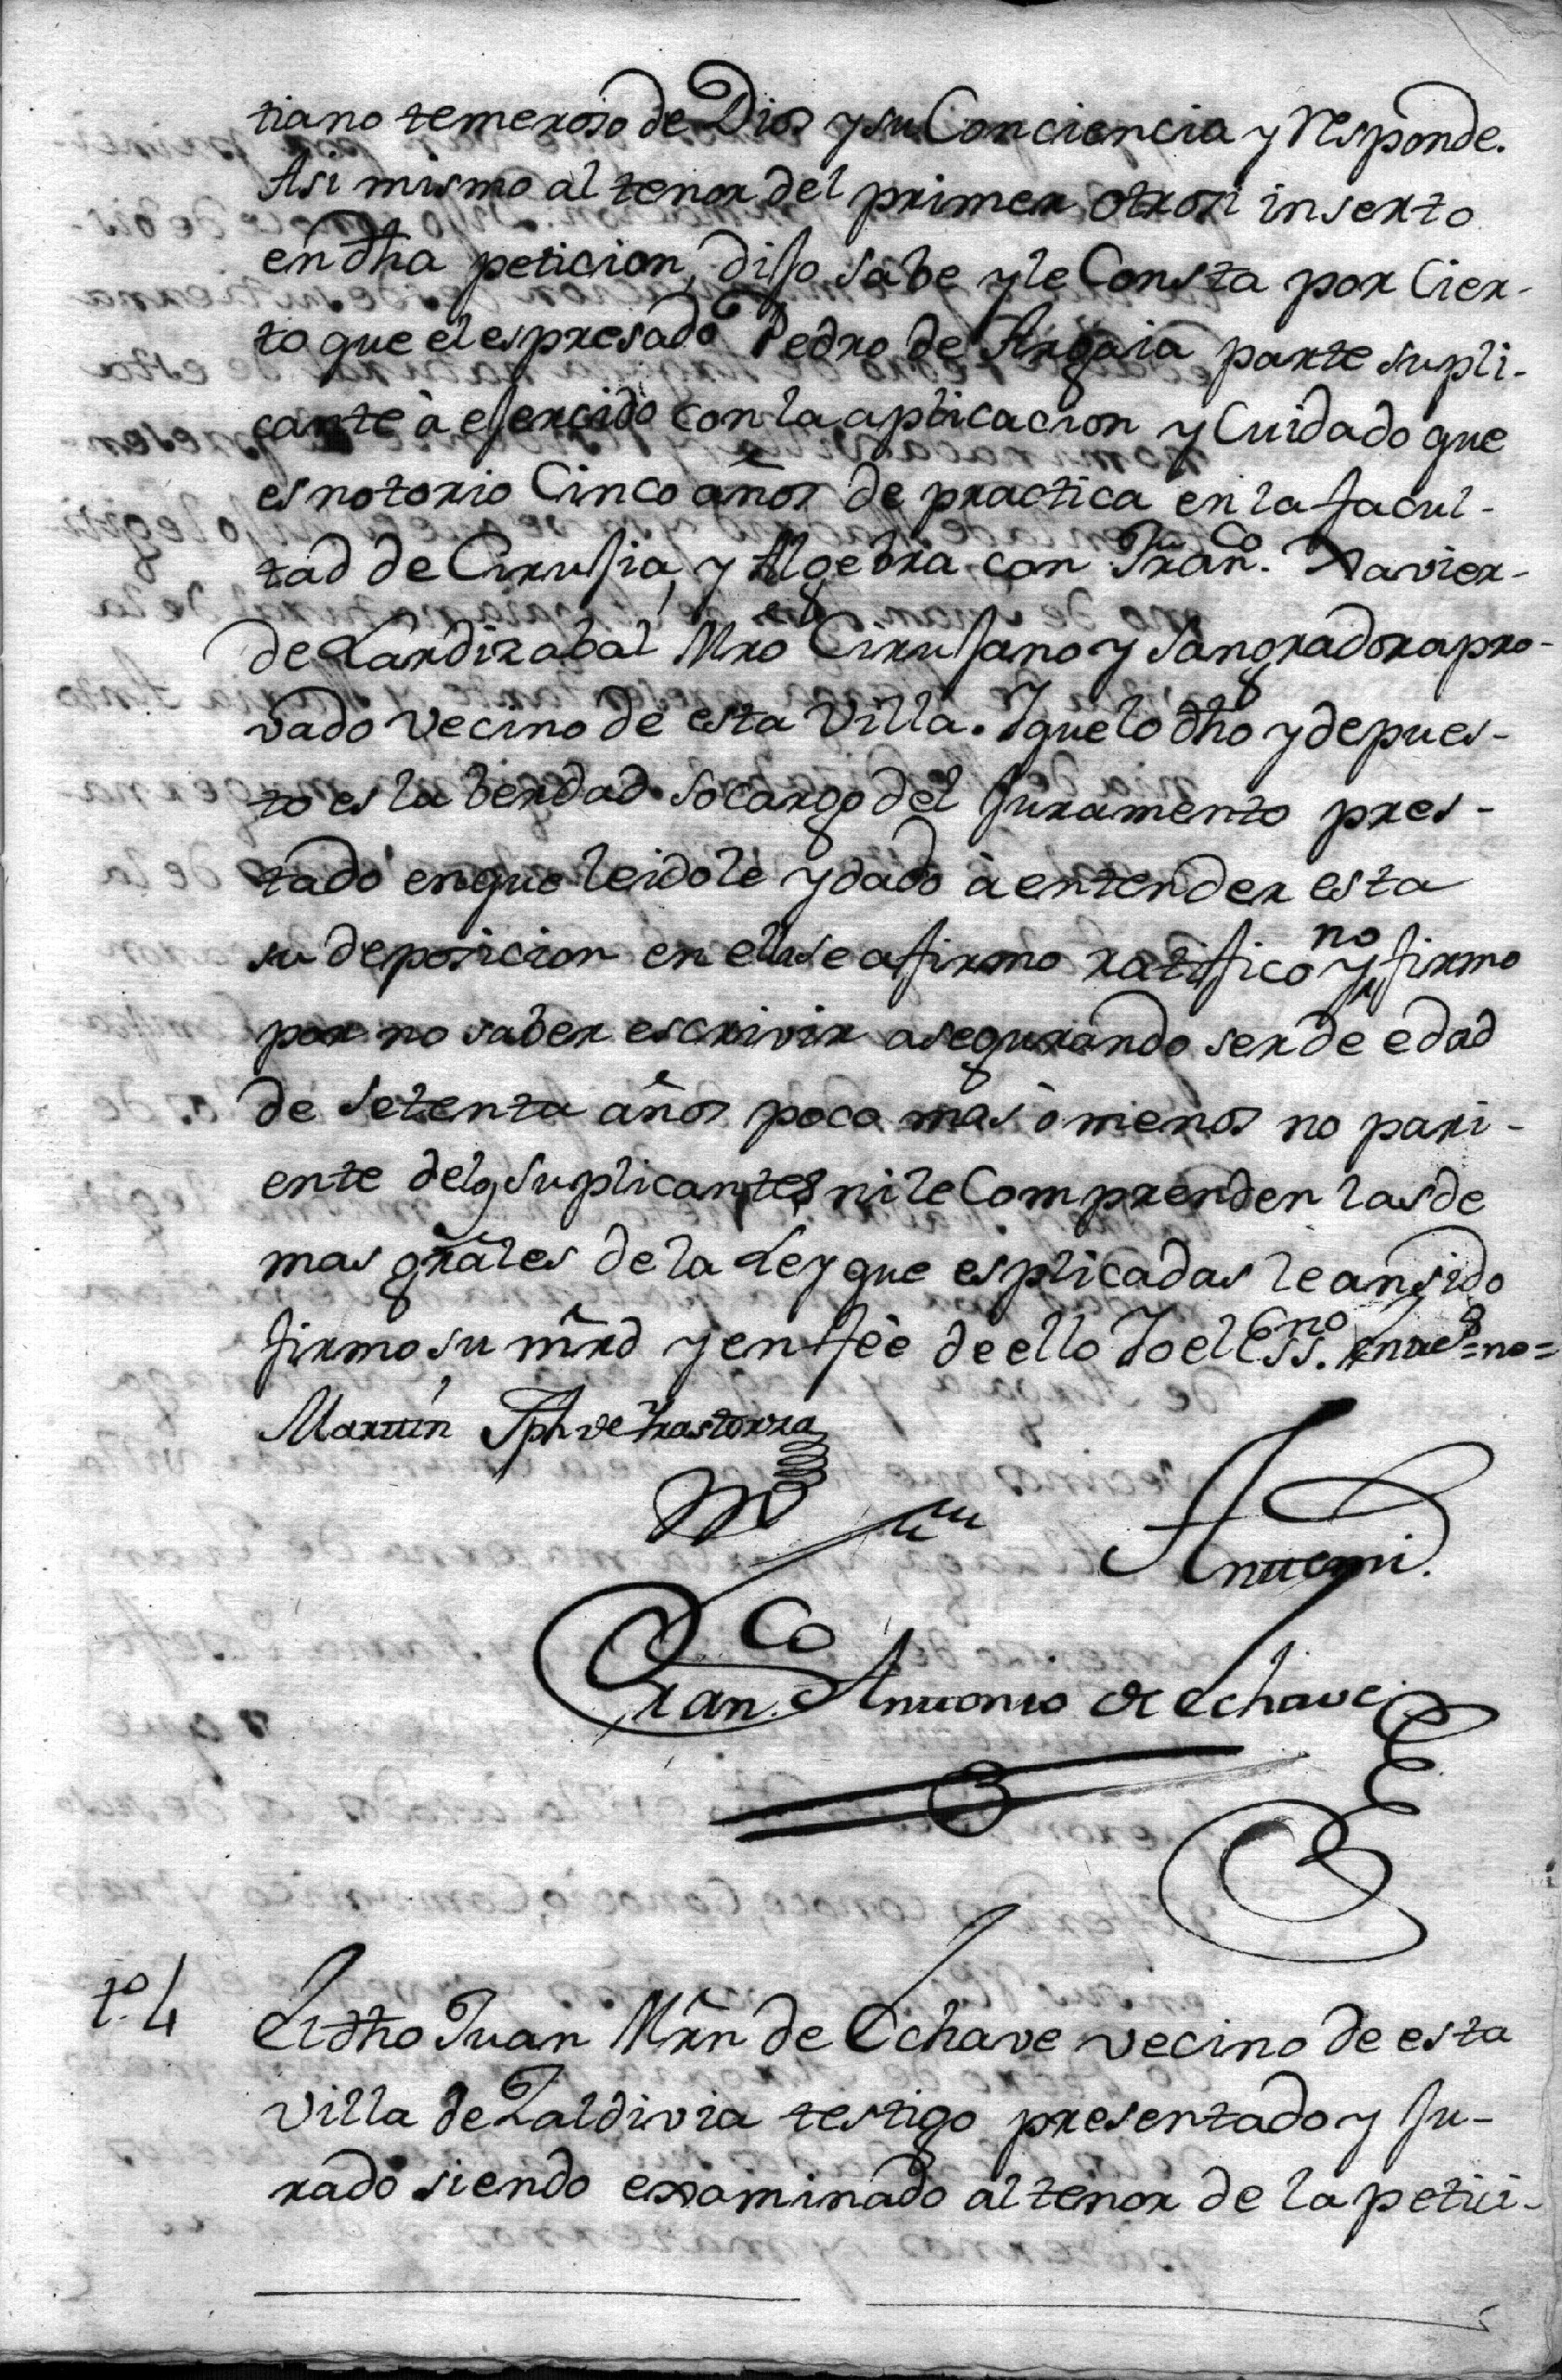 tiano temeroso de Dios y su Conciencia y responde.
Asi mismo al tenor del primer otrosi inserto
en dha peticion, dijo sabe y le Consta por Cier-
to que el espresado Pedro de Argaia parte supli-
cante à ejercido con la aplicacion y Cuidado que
es notorio Cinco años de practica en la facul-
tad de Cirujia, y Algebra con Fran.co Xavier-
de Lardizabal Mro Cirujano y Sangrador apro-
vado vecino de esta Villa. Y que lo dho y depues-
to es la berdad so cargo del juramento pres-
tado en que leidole y dado à entender esta
su deposicion en ella se afirmo ratifico y no firmo
por no saber escrivir asegurando ser de edad
de setenta años poco mas ò menos no pari-
ente delos suplicantes ni le Comprenden las de
mas gräles de la Ley que esplicadas le an sido
firmo su mrd y en feè de ello Yo el Ess.no Entre Rs = no =
Martin Jph de Irastorza
Antemi.
Fran.co Antonio de Echave
t.o 4
El dho Juan Mrn de Echave vecino de esta
villa de Zaldivia testigo presentado y ju-
rado siendo examinado al tenor de la petici-